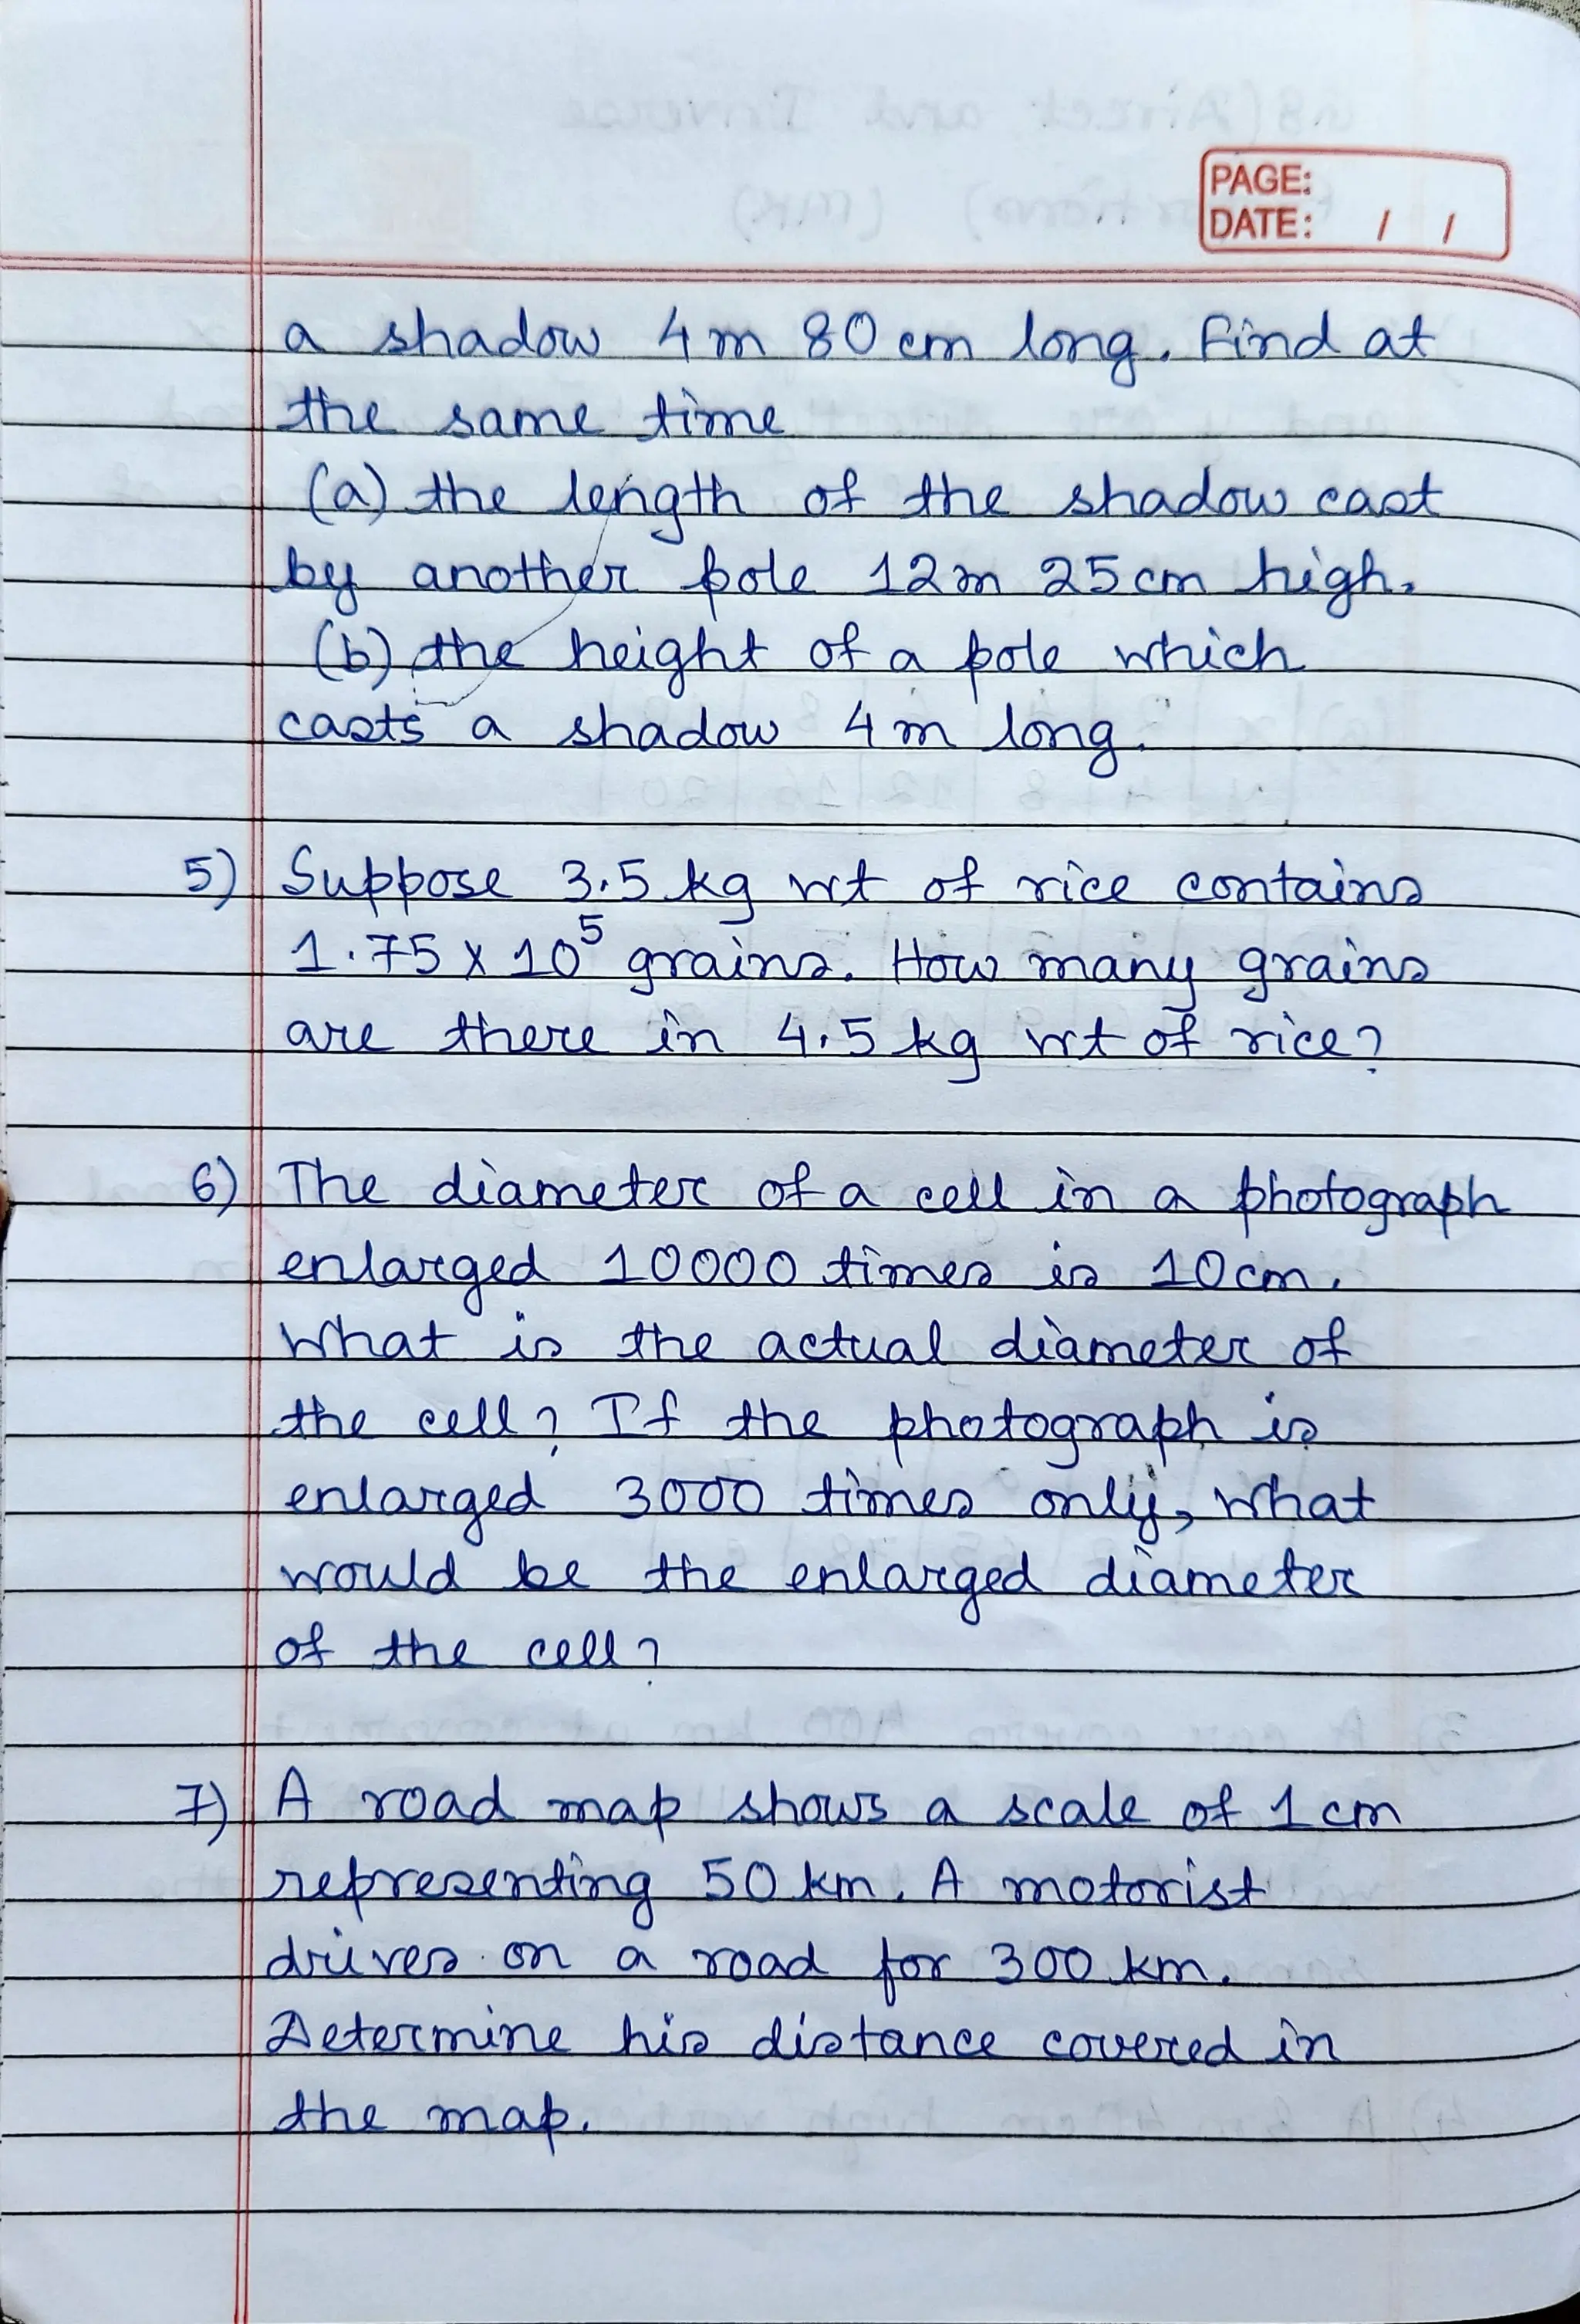 PAGE:
DATE: / /
a shadow 4 m 80 cm long. Find at
the same time
(a) the length of the shadow cast
by another pole 12m 25 cm high.
(b) the height of a pole which
casts a shadow 4 m long.
5) Suppose 3.5 kg wt of rice contains
1.75 x 10⁵ grains. How many grains
are there in 4.5 kg wt of rice?
6) The diameter of a cell in a photograph
enlarged 10000 times is 10 cm.
What is the actual diameter of
the cell? If the photograph is
enlarged 3000 times only, what
would be the enlarged diameter
of the cell?
7) A road map shows a scale of 1 cm
representing 50 km. A motorist
drives on a road for 300 km.
Determine his distance covered in
the map.